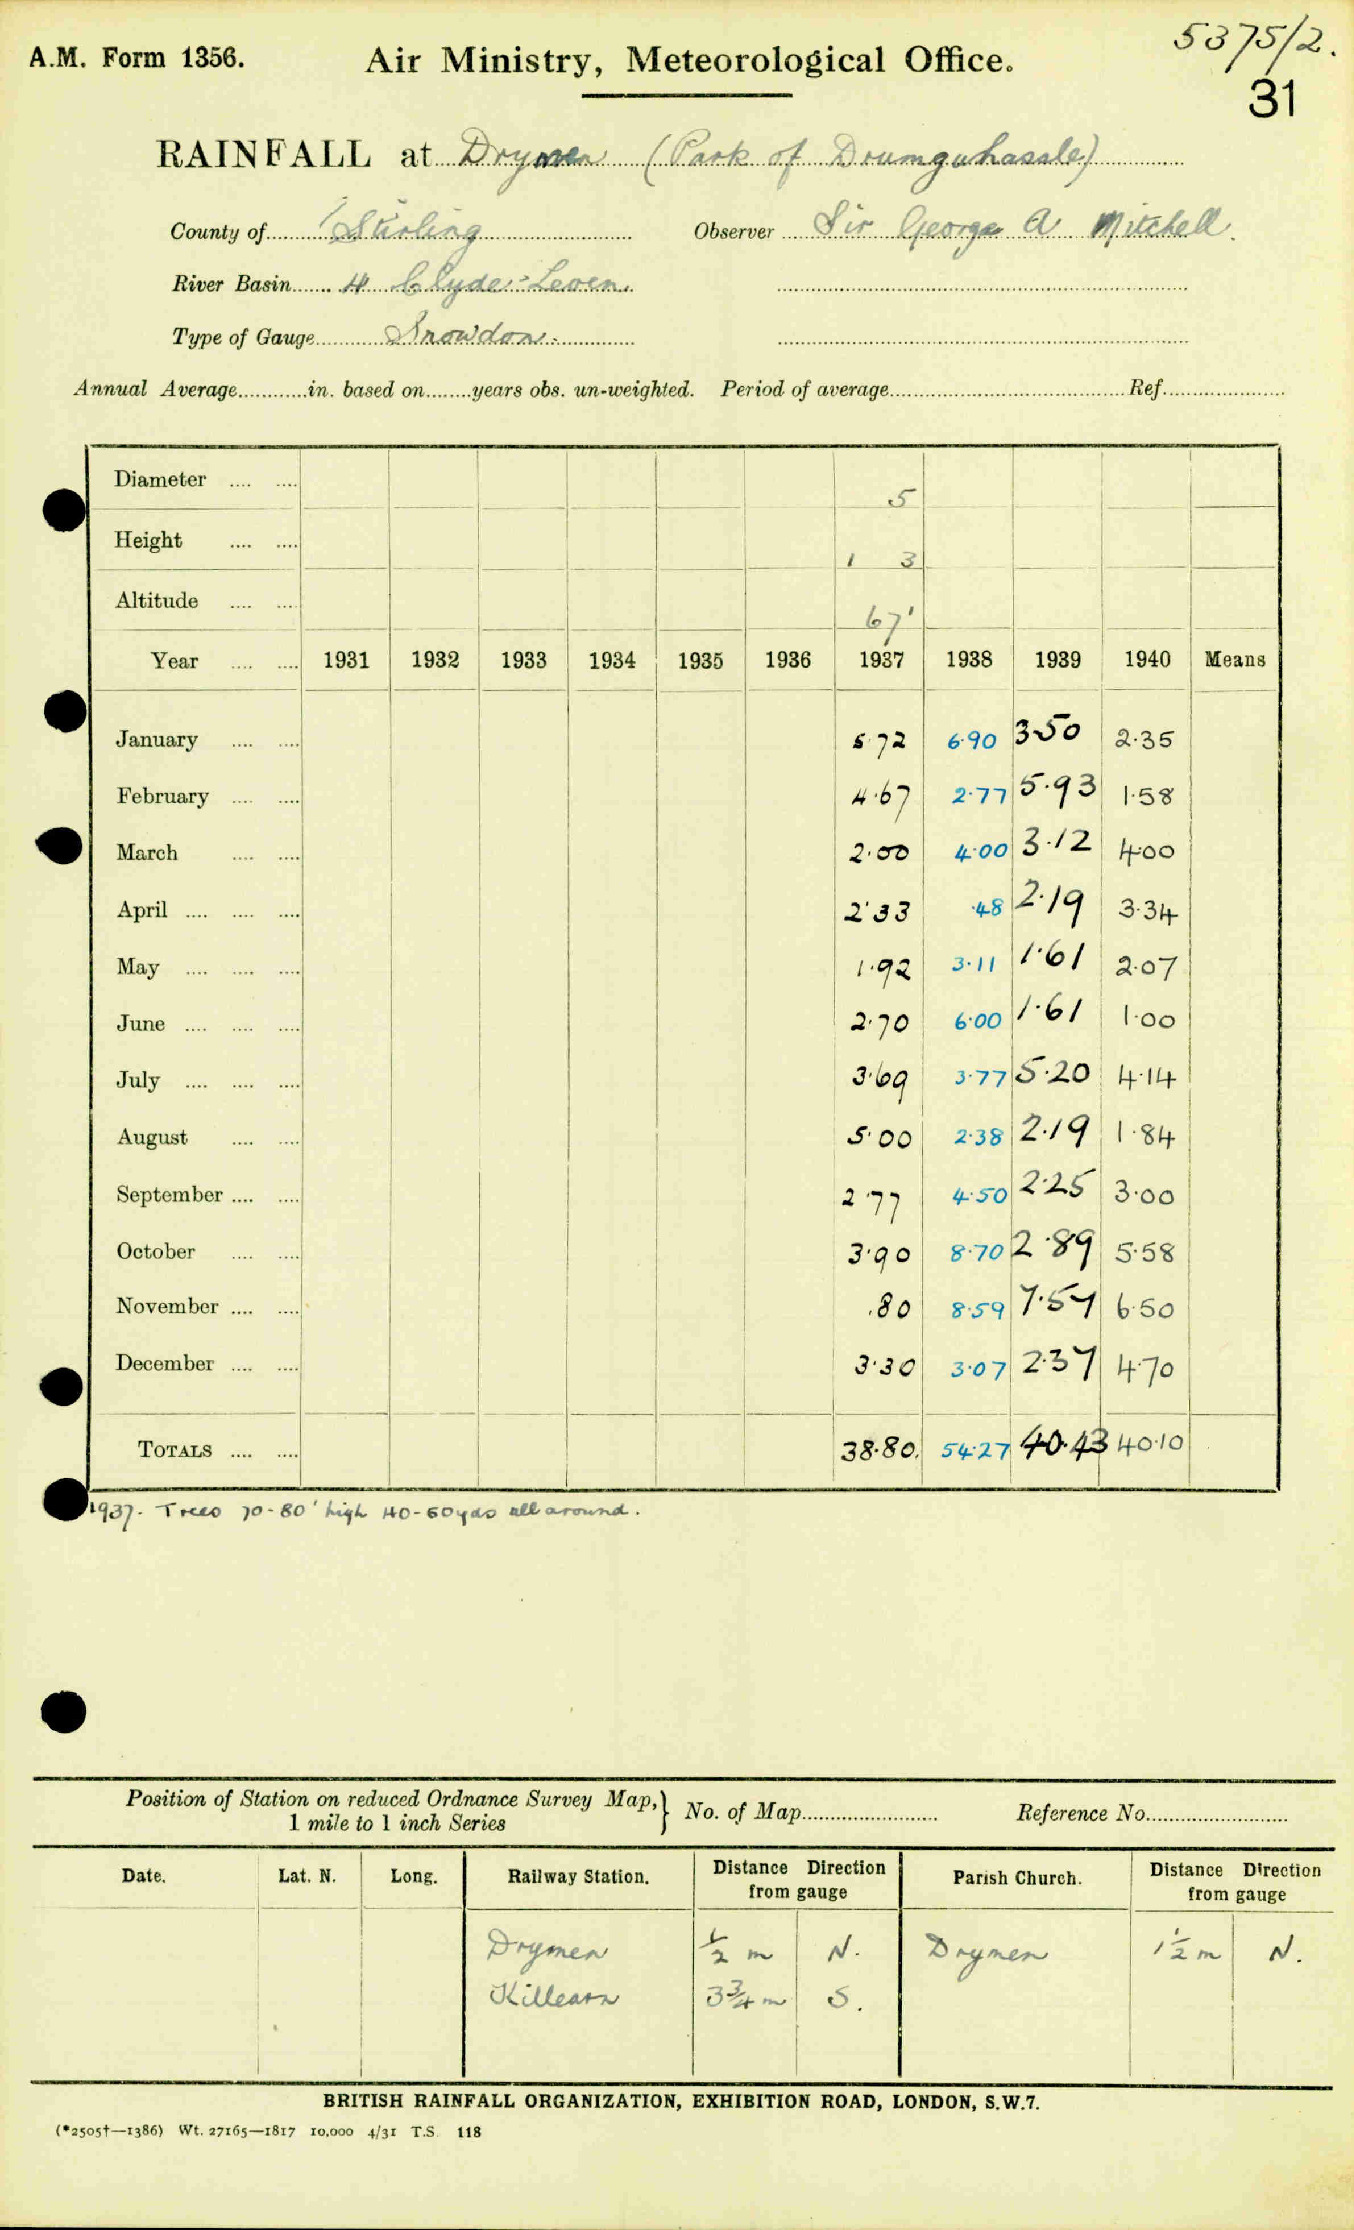 5375/2.
A.M. Form 1356. Air Ministry, Meteorological Office.
31
RAINFALL at Drymen (Park of Drumquhassle)
County of Stirling Observer Sir George A Mitchell.
River Basin 4 Clyde-Leven.
Type of Gauge Snowdon.
Annual Average in. based on years obs. un-weighted. Period of average Ref.
Diameter 5
Height 1 3
Altitude 67'
Year 1931 1932 1933 1934 1935 1936 1937 1938 1939 1940 Means
January 5.72 6.90 3.50 2.35
February 4.67 2.77 5.93 1.58
March 2.00 4.00 3.12 4.00
April 2.33 .48 2.19 3.34
May 1.92 3.11 1.61 2.07
June 2.70 6.00 1.61 1.00
July 3.69 3.77 5.20 4.14
August 5.00 2.38 2.19 1.84
September 2.77 4.50 2.25 3.00
October 3.90 8.70 2.89 5.58
November .80 8.59 7.57 6.50
December 3.30 3.07 2.37 4.70
TOTALS 38.80. 54.27 40.43 40.10
1937. Trees 70-80' high 40-60yds all around.
Position of Station on reduced Ordnance Survey Map, 1 mile to 1 inch Series } No. of Map Reference No.
Date. Lat. N. Long. Railway Station. Distance Direction from gauge Parish Church. Distance Direction from gauge
Drymen ½ m N. Drymen 1½ m N.
Killearn 3¾ m S.
BRITISH RAINFALL ORGANIZATION, EXHIBITION ROAD, LONDON, S.W.7.
(*2505†—1386) Wt. 27165—1817 10,000 4/31 T.S. 118